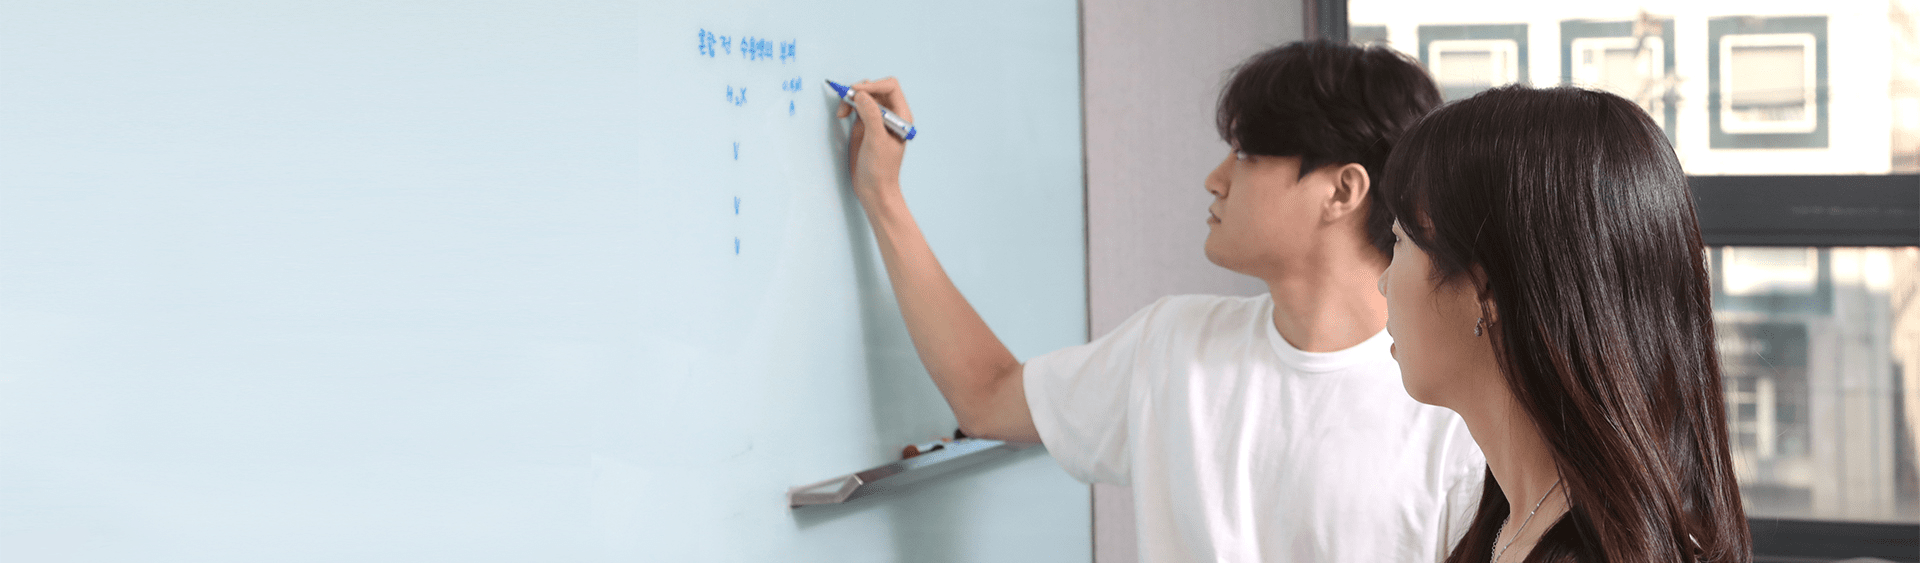 혼합 전 수용액의 부피
H₂X
V
V
V